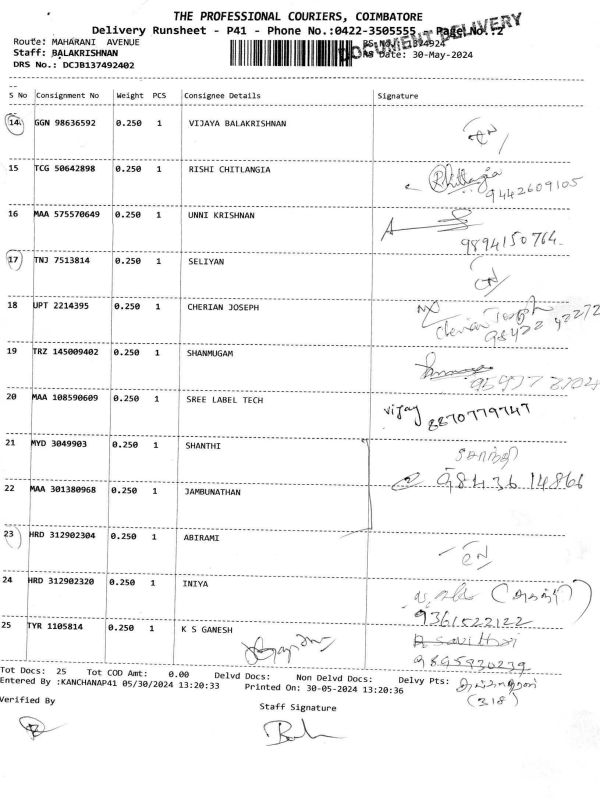 THE PROFESSIONAL COURIERS, COIMBATORE
Delivery Runsheet - P41 - Phone No.:0422-3505555, Page No.:2
DOCUMENT DELIVERY
Route: MAHARANI AVENUE
Staff: BALAKRISHNAN
RS Date: 30-May-2024
DRS No.: DCJB137492402
S No Consignment No Weight PCS Consignee Details Signature
14 GGN 98636592 0.250 1 VIJAYA BALAKRISHNAN
15 TCG 50642898 0.250 1 RISHI CHITLANGIA
9442609105
16 MAA 575570649 0.250 1 UNNI KRISHNAN
9894150764
17 TNJ 7513814 0.250 1 SELIYAN
18 UPT 2214395 0.250 1 CHERIAN JOSEPH
Cherian Joseph
19 TRZ 145009402 0.250 1 SHANMUGAM
20 MAA 108590609 0.250 1 SREE LABEL TECH
vijay 8870779747
21 MYD 3049903 0.250 1 SHANTHI
சாந்தி
98436 14866
22 MAA 301380968 0.250 1 JAMBUNATHAN
23 HRD 312902304 0.250 1 ABIRAMI
24 HRD 312902320 0.250 1 INIYA
9361522122
25 TYR 1105814 0.250 1 K S GANESH
9895930239
Tot Docs: 25 Tot COD Amt: 0.00 Delvd Docs: Non Delvd Docs: Delvy Pts:
Entered By :KANCHANAP41 05/30/2024 13:20:33 Printed On: 30-05-2024 13:20:36
(318)
Verified By
Staff Signature